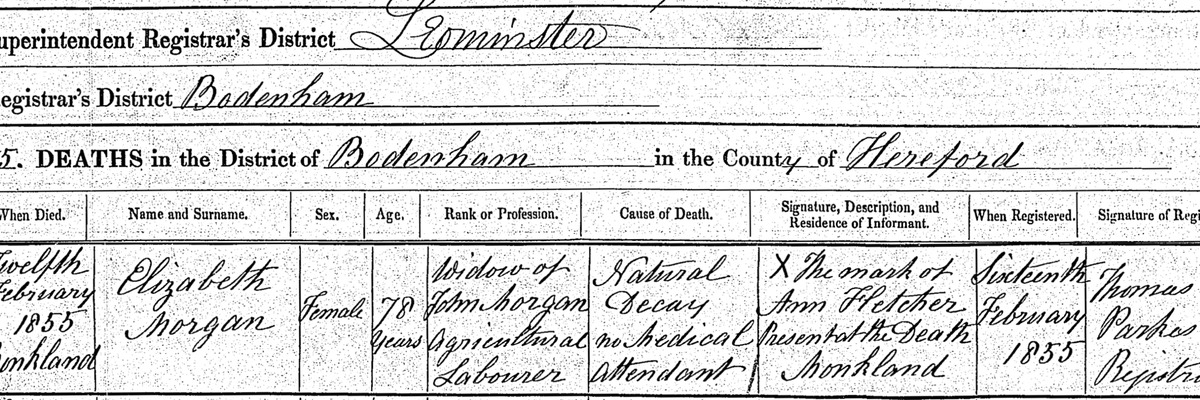 uperintendent Registrar's District Leominster
egistrar's District Bodenham
5. DEATHS in the District of Bodenham in the County of Hereford
When Died. Name and Surname. Sex. Age. Rank or Profession. Cause of Death. Signature, Description, and Residence of Informant. When Registered. Signature of Regi
Twelfth
February
1855
Monkland
Elizabeth
Morgan
Female
78
Years
Widow of
John Morgan
Agricultural
Labourer
Natural
Decay
no Medical
attendant
X The mark of
Ann Fletcher
Present at the Death
Monkland
Sixteenth
February
1855
Thomas
Parkes
Registr